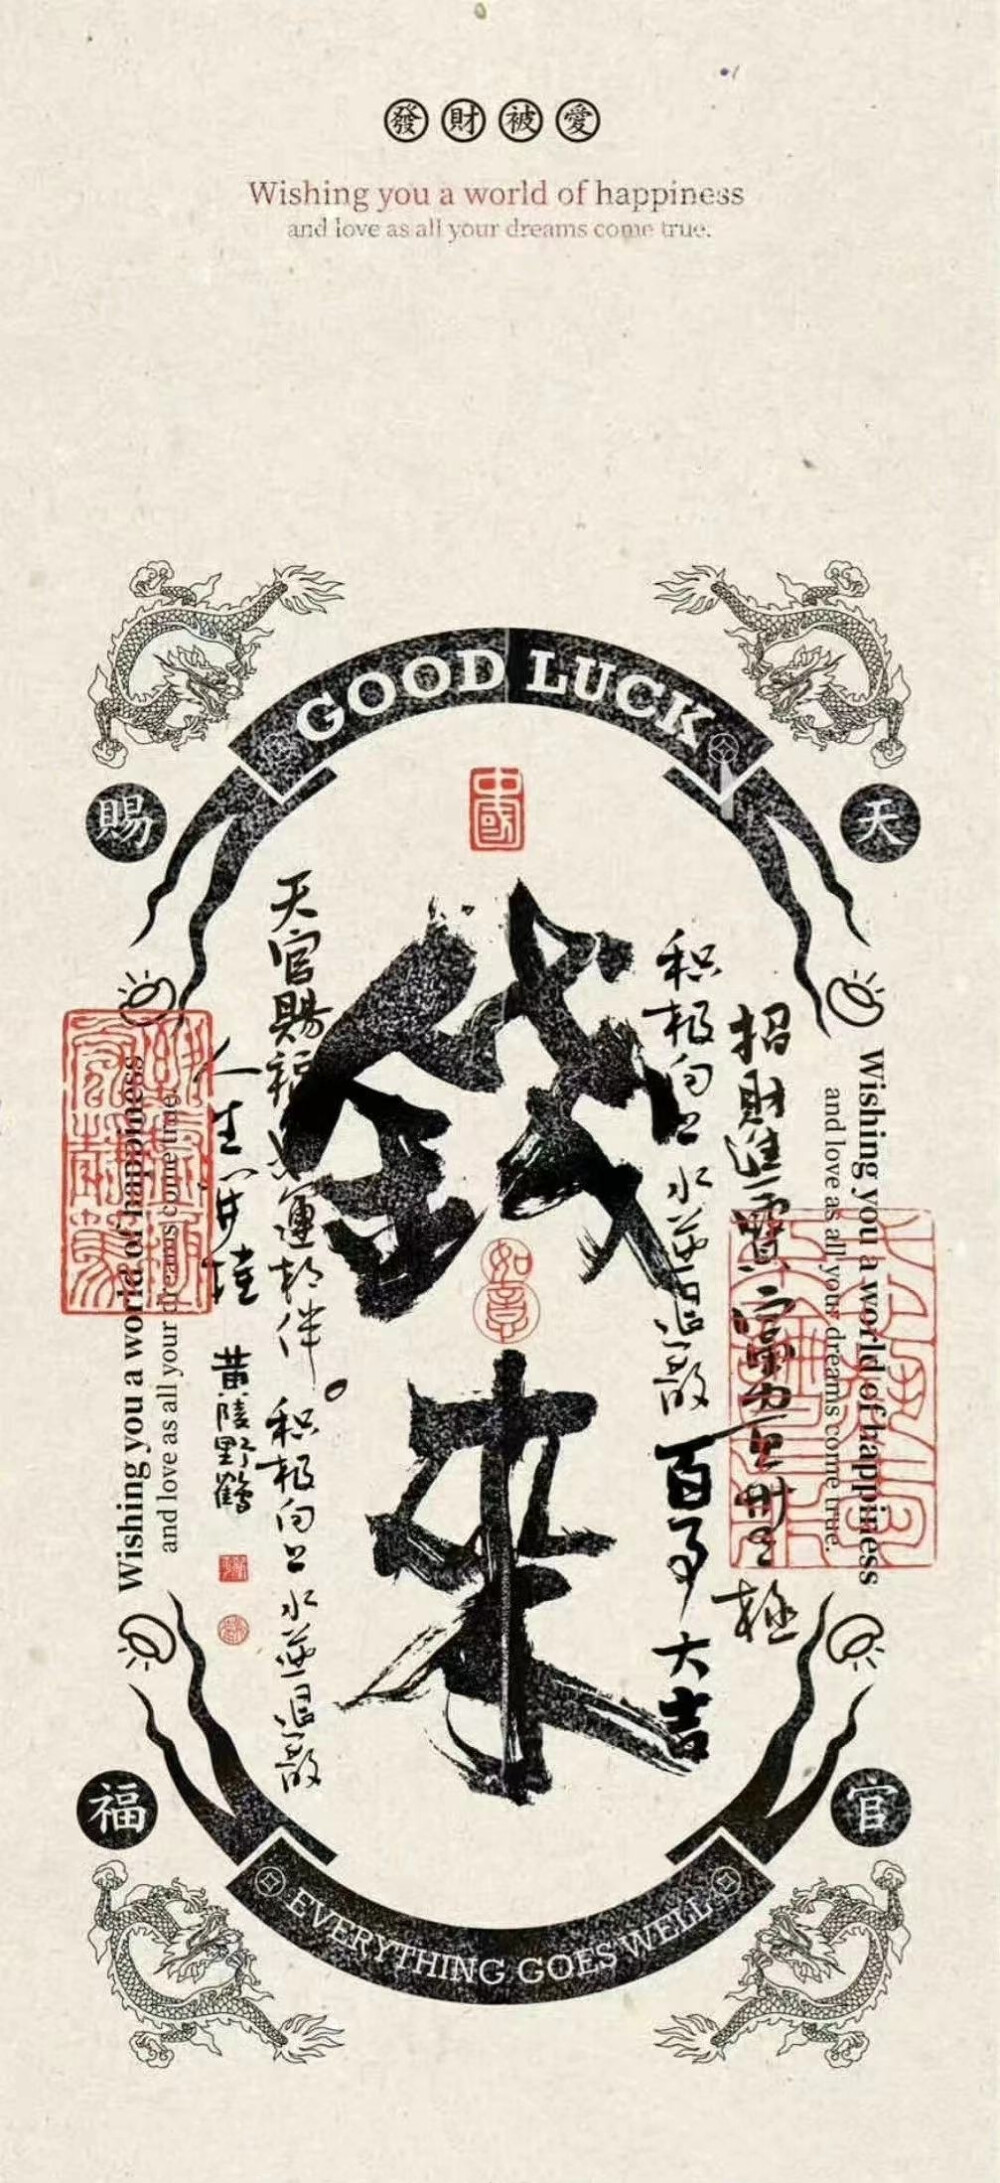 發財被愛
Wishing you a world of happiness
and love as all your dreams come true.
GOOD LUCK
天
賜
中國
錢來
如意
招財進寶
积极向上水逆退散百事大吉
天官賜福
運相伴
积极向上水逆退散
人生
黄陵野鶴
Wishing you a world of happiness
and love as all your dreams come true.
Wishing you a world of happiness
and love as all your dreams come true.
官
福
EVERYTHING GOES WELL